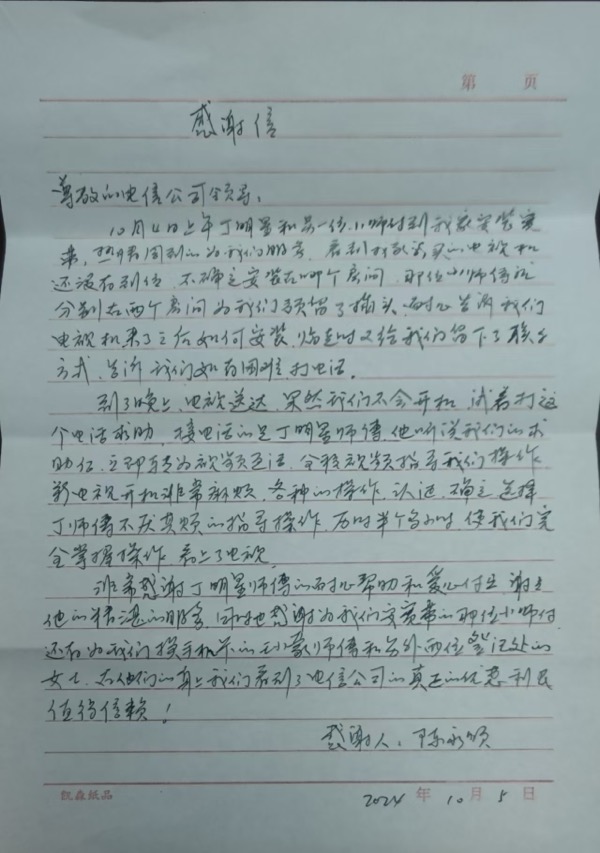 第 页
感谢信
尊敬的电信公司领导:
10月4日上午丁明星和另一位小师付到我家安装宽
带,热情周到的为我们服务,看到我家买的电视机
还没有到位,不确定安装在哪个房间,那位小师傅就
分别在两个房间为我们预留了插头,耐心告诉我们
电视机来了之后如何安装,临走时又给我们留下了联系
方式,告诉我们如有困难,打电话。
到了晚上,电视送达,果然我们不会开机,试着打这
个电话求助,接电话的是丁明星师傅,他听说我们的求
助后,立即转为视频通话,全程视频指导我们操作
新电视开机非常麻烦,各种的操作,认证,确定,选择
丁师傅不厌其烦的指导操作,历时半个多小时,使我们完
全掌握操作,看上了电视。
非常感谢丁明星师傅的耐心帮助和爱心付出,谢谢
他的精湛的服务,同时也感谢为我们安宽带的那位小师付
还有为我们投手机卡的王小蒙师傅和另外两位登记处的
女士,在他们的身上我们看到了电信公司的真正的优惠利民
值得信赖!
感谢人:陈永颂
凯森纸品 2024 年 10 月 5 日